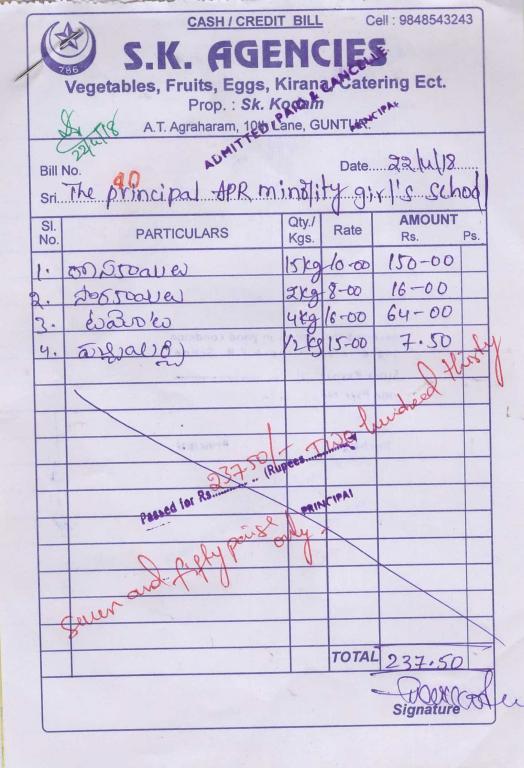 CASH / CREDIT BILL Cell : 9848543243
786
S.K. AGENCIES
Vegetables, Fruits, Eggs, Kirana, Catering Ect.
Prop. : Sk.
A.T. Agraharam, 10th Lane, GUNTUR.
ADMITTED, PAID & CANCELLED
PRINCIPAL
22/4/18
Bill No. 40 Date 22/4/18
Sri. The principal APR minolity girl's school
Sl. No. PARTICULARS Qty./ Kgs. Rate AMOUNT Rs. Ps.
1. 15kg 10-00 150-00
2. 2kg 8-00 16-00
3. టమోటాలు 4kg 16-00 64-00
4. 1/2kg 15-00 7.50
Passed for Rs. 237.50/- (Rupees Two hundred thirty
PRINCIPAL
Seven and fifty paise only.
TOTAL 237.50
Signature